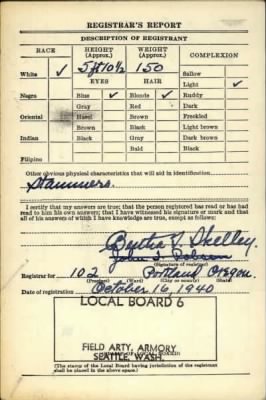 REGISTRAR'S REPORT
DESCRIPTION OF REGISTRANT
RACE HEIGHT (Approx.) WEIGHT (Approx.) COMPLEXION
White ✓ 5 ft 10½ 150 Sallow
EYES HAIR Light ✓
Negro Blue ✓ Blonde ✓ Ruddy
Gray Red Dark
Oriental Hazel Brown Freckled
Brown Black Light brown
Indian Black Gray Dark brown
Bald Black
Filipino
Other obvious physical characteristics that will aid in identification
Stammers.
I certify that my answers are true; that the person registered has read or has had read to him his own answers; that I have witnessed his signature or mark and that all of his answers of which I have knowledge are true, except as follows:
Bertha T. Skelley
John
(Signature of registrar)
Registrar for 102 Portland Oregon.
(Precinct) (Ward) (City or county) (State)
Date of registration October 16, 1940
LOCAL BOARD 6
FIELD ARTY, ARMORY
SEATTLE, WASH.
(The stamp of the Local Board having jurisdiction of the registrant shall be placed in the above space.)